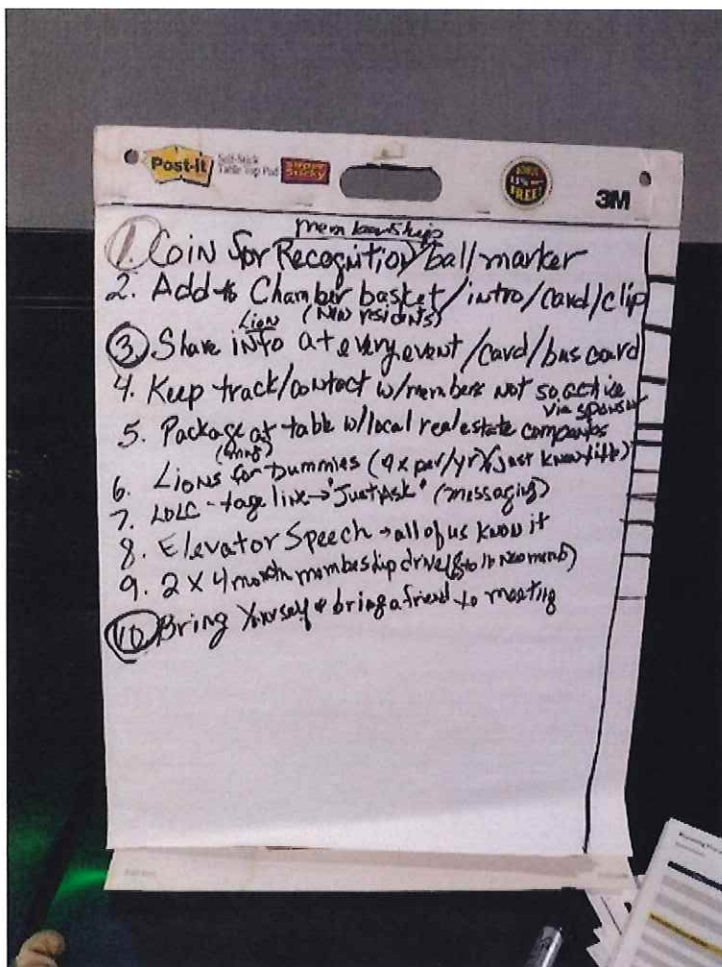 Post-it
Self-Stick
Table Top Pad
Super
Sticky
FREE!
3M
Membership
1. Coin for Recognition/ball/marker
2. Add to Chamber basket/intro/card/clip
Lion (New residents)
3. Share info at every event/card/bus card
4. Keep track/contact w/members not so active
via sponsor
5. Package at table w/local real estate companies
6. Lions for Dummies (4x per/yr)
7. LOLC - tage line → "Just Ask" (messaging)
8. Elevator Speech → all of us know it
9. 2 x 4 month membership drive
10. Bring Yourself & bring a friend to meeting